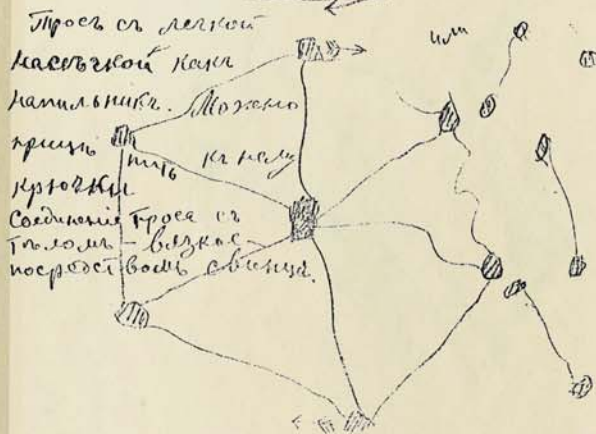 Тросъ съ легкой
насѣчкой какъ
напильникъ. Можно
прицѣпить къ нему
крючки
Соединение троса съ
тѣломъ – вязкое –
посредствомъ свинца.
или